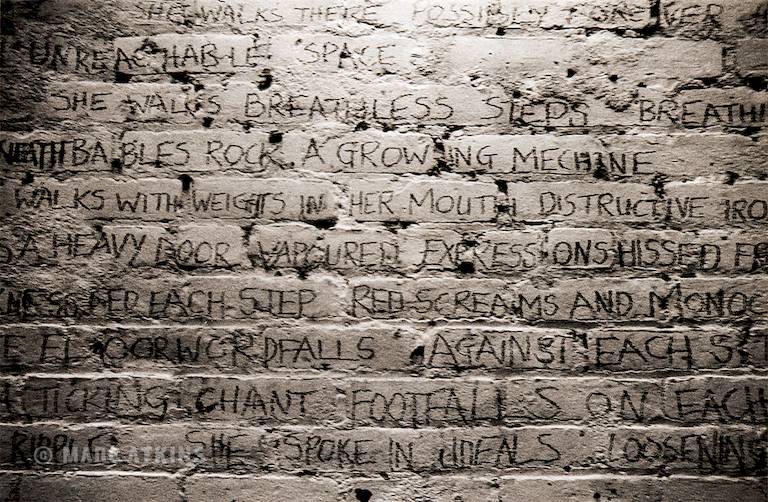 SHE WALKS THERE POSSIBLY FOREVER
UNREACHABLE SPACE
SHE WALKS BREATHLESS STEPS BREATHI
BABLES ROCK A GROWING MECHINE
WALKS WITH WEIGHTS IN HER MOUTH DISTRUCTIVE IRO
A HEAVY DOOR VAPOURED EXPRESSIONS HISSED FR
EACH STEP RED SCREAMS AND MONOC
FALLS AGAINST EACH ST
TICKING CHANT FOOTFALLS ON EACH
RIPPLE SHE SPOKE IN IDEALS LOOSENING
© MARK ATKINS